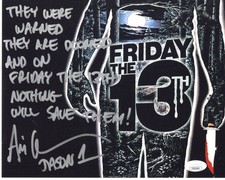 THEY WERE
WARNED
THEY ARE DOOMED
AND ON
FRIDAY THE 13TH
NOTHING
WILL SAVE THEM!
JASON 1
FRIDAY
THE
13TH